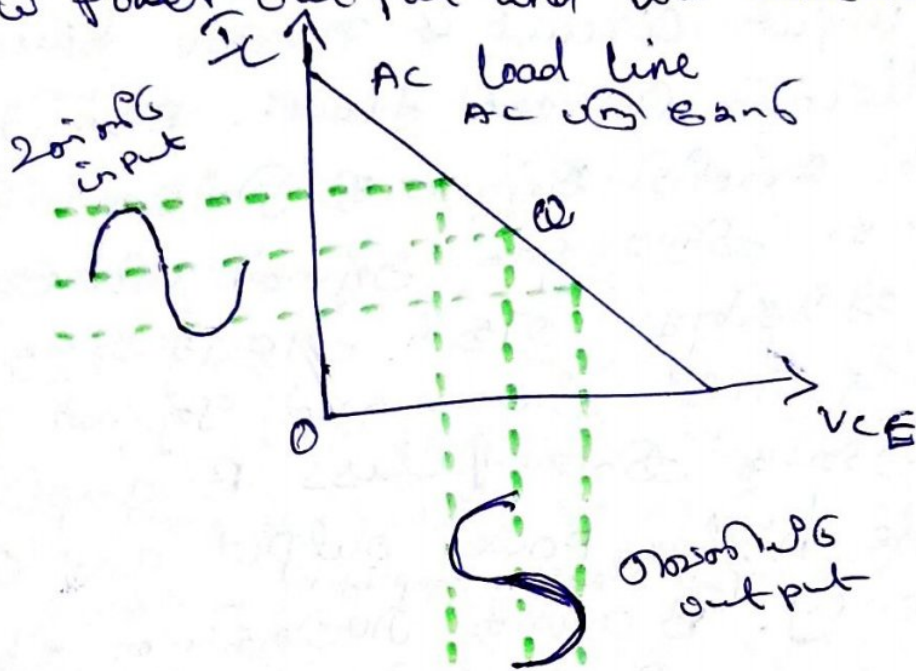 power output and
Ic
AC load line
AC பளு கோடு
உள்ளீடு
input
Q
O
VCE
வெளியீடு
output